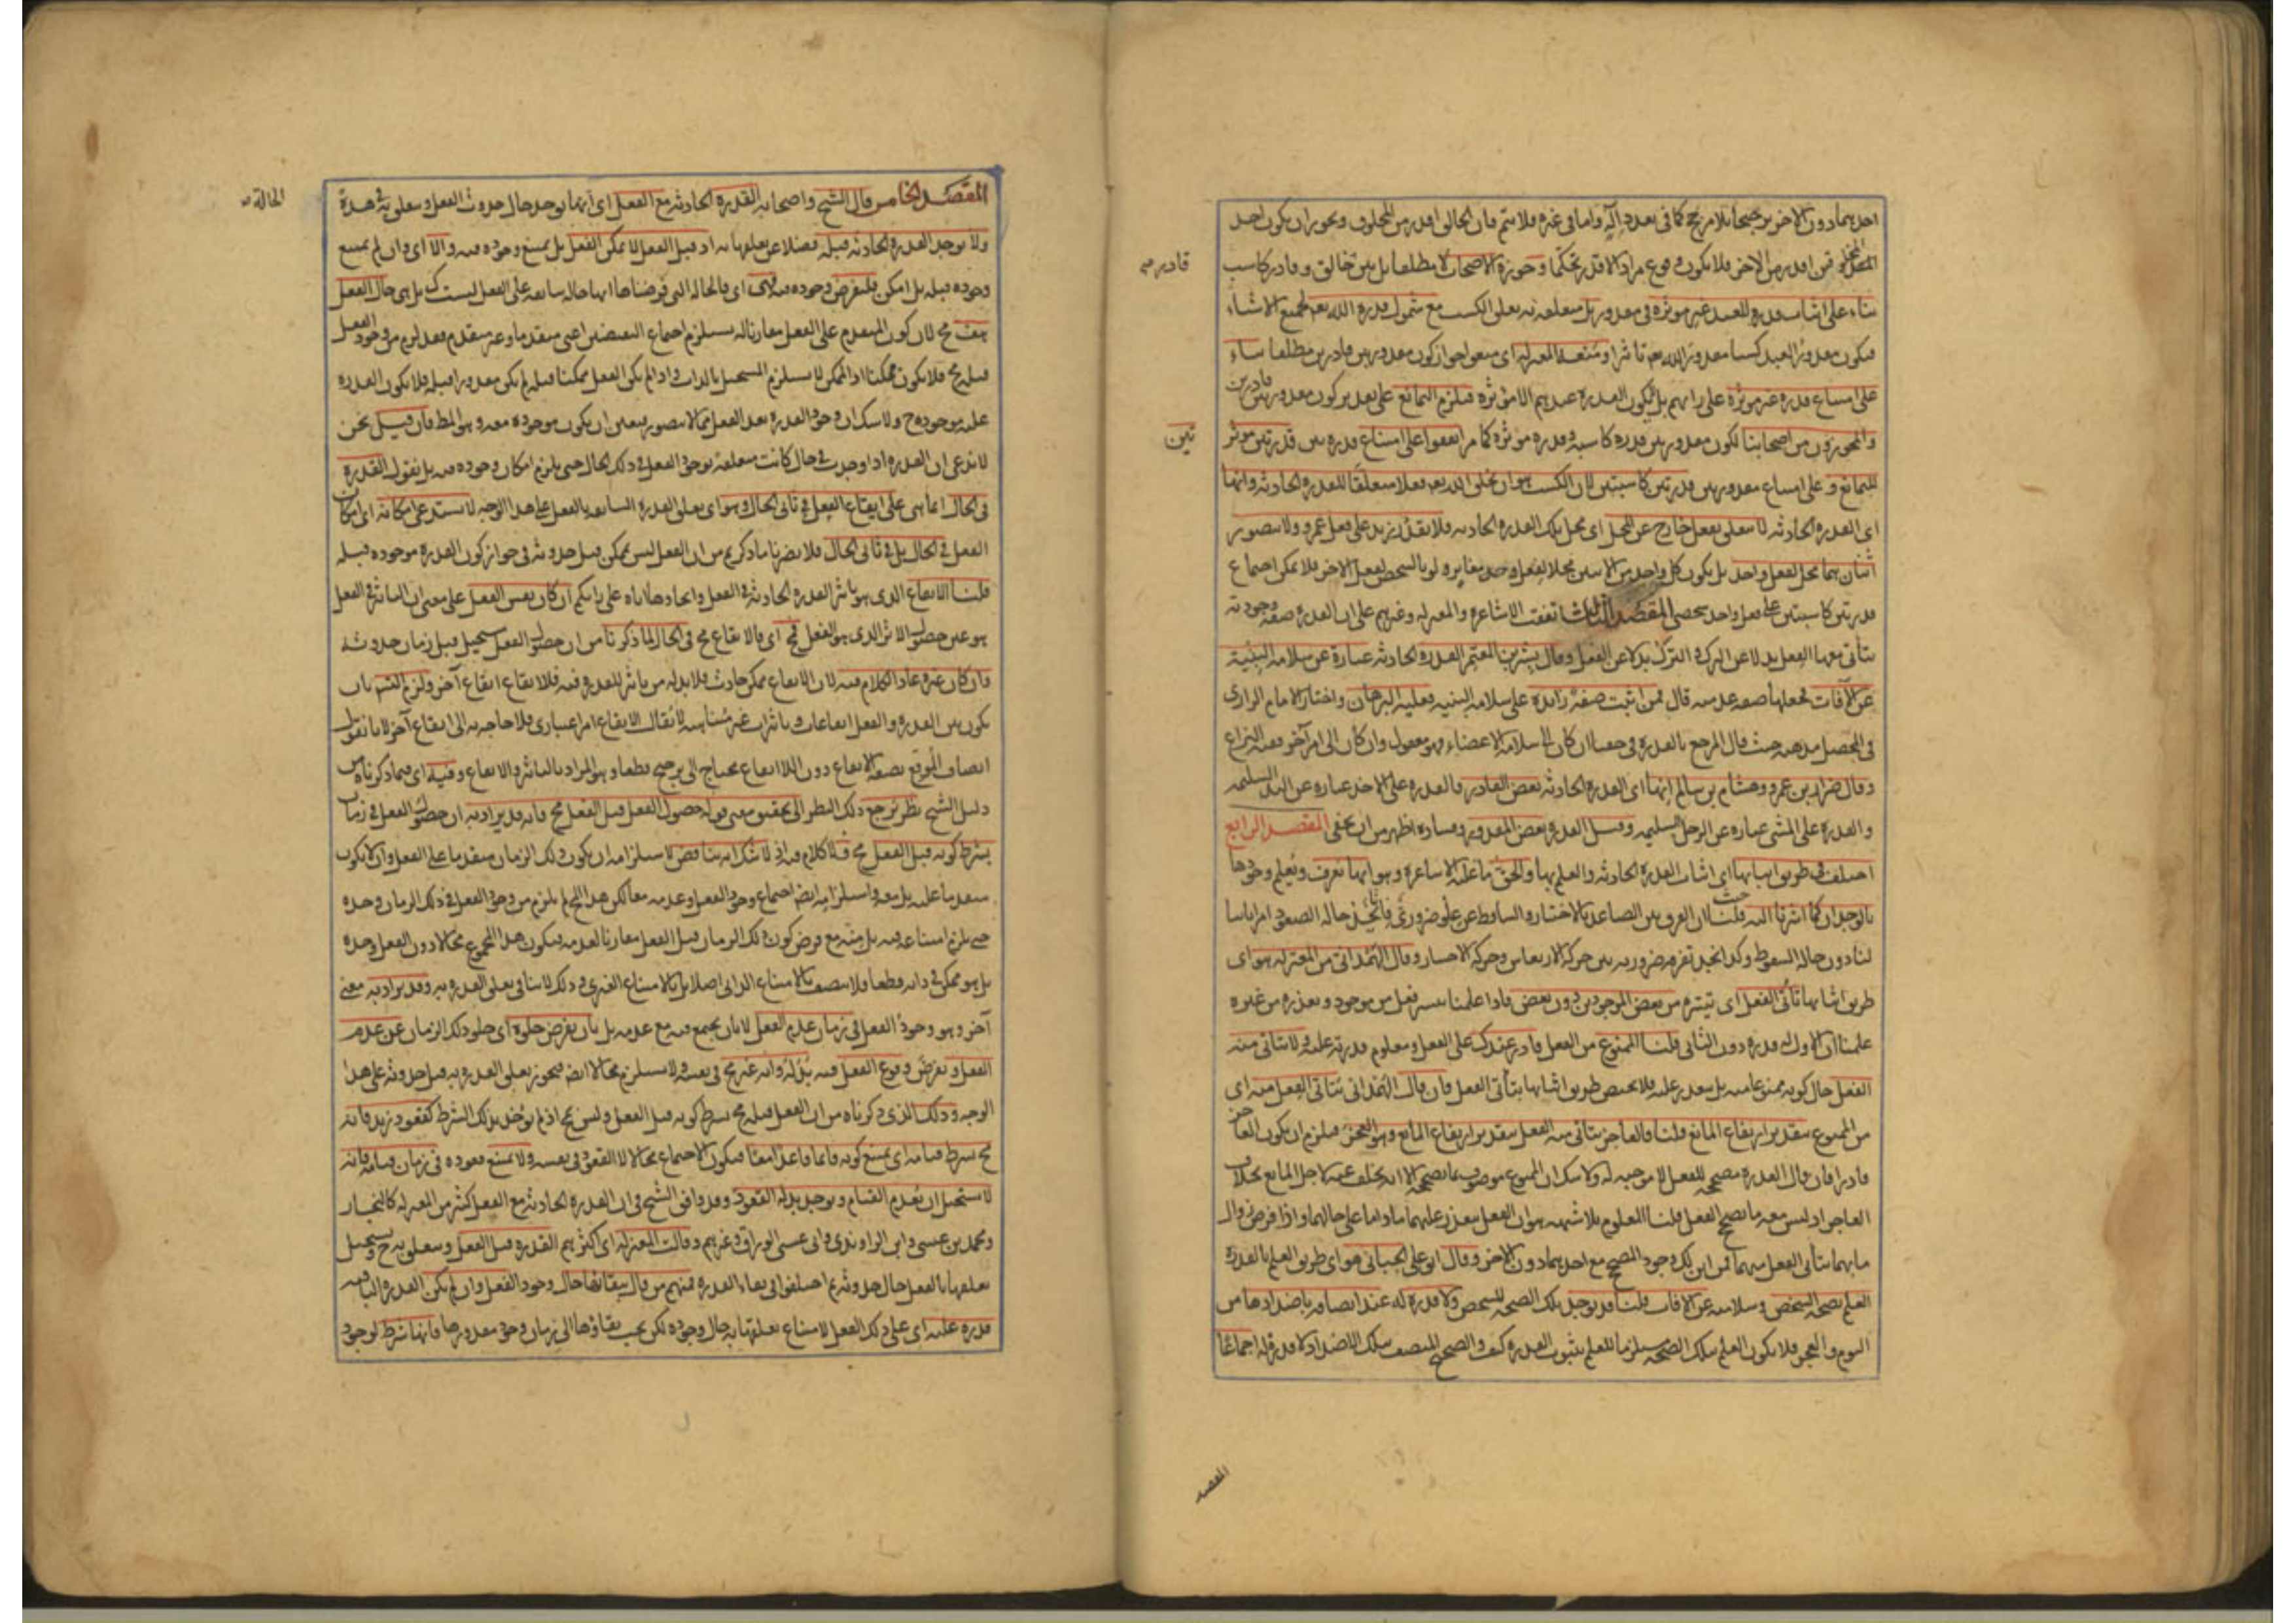 احدهما دون الاخر ترجيحا بلا مرجح كما في بعد داله واما في غيره فلا يتم فان الخالق اقدر من المخلوق ويجوز ان يكون احد
من اقدر من الاخر فلا يكون وقوع مراد الاقدر تحكما وجوزه الاصحاب لا مطلقا بل بين خالق وقادر كاسب
قادر
بناء على اثبات قدرة للعبد غير موثرة في مقدور بل متعلقه به تعلق الكسب مع شمول قدرة الله تعم لجميع الاشياء
فيكون مقدور العبد كسبا مقدور الله تعم تاثيرا ومنعه المعتزله اي منعوا جواز كون مقدور بين قادرين مطلقا بناء
على امتناع قدرة غير موثرة على رايهم بل لا يكون القدرة عندهم الا موثرة فيلزم التمانع على تقدير كون مقدور بين قادرين
والمجوزون من اصحابنا لكون مقدور بين قدرة كاسبه وقدرة موثرة كما مر اتفقوا على امتناع قدرة بين قدرتين موثر
تين
للتمانع وعلى امتناع مقدور بين قدرتين كاسبتين لان الكسب هو ان يخلق الله تعم فعلا متعلقا للقدرة الحادثه وانها
اي القدرة الحادثه لا تتعلق بفعل خارج عن المحل اي محل تلك القدرة الحادثه فلا يقدر زيد على فعل عمرو ولا يتصور
اثنان هما محل لفعل واحد بل يكون كل واحد من الاثنين محلا لفعل واحد مغاير ولو بالشخص لفعل الاخر فلا يمكن اجتماع
قدرتين كاسبتين على فعل واحد شخصي المقصد الثالث اتفقت الاشاعرة والمعتزله وغيرهم على ان القدرة صفه وجوديه
يتاتى معها الفعل بدلا عن الترك والترك بدلا عن الفعل وقال بشر بن المعتمر القدرة الحادثه عبارة عن سلامه البنيه
عن الآفات فجعلها صفه عدميه قال فمن اثبت صفه زايدة على سلامه البنيه فعليه البرهان واختار الامام الرازي
في المحصل مذهبه حيث قال المرجع بالقدرة في حقنا ان كان الى سلامه الاعضاء فهو معقول وان كان الى امر آخر ففيه النزاع
وقال ضرار بن عمرو وهشام بن سالم انها اي القدرة الحادثه بعض القادر فالقدرة على الاخذ عبارة عن اليد السليمه
والقدرة على المشي عبارة عن الرجل السليمه وقيل القدرة بعض المقدور وفساده اظهر من ان يخفى المقصد الرابع
اختلف في طريق اثباتها اي اثبات القدرة الحادثه والعلم بها والحق ما عليه الاشاعرة وهو انها تعرف ويعلم وجودها
بالوجدان كما اشرنا اليه حيث قلنا ان الفرق بين الصاعد بالاختيار والساقط عن علو ضروري فالمتحيز حاله الصعود امرا ثابتا
لنا دون حاله السقوط وكذا نجد تفرقه ضروريه بين حركة الارتعاش وحركة الاختيار وقال الهمداني من المعتزله هو اي
طريق اثباتها تاتي الفعل اي تيسره من بعض الموجودين دون بعض فاذا علمنا تيسر فعل من موجود وتعذره من غيره
علمنا ان الاول له قدرة دون الثاني قلنا الممنوع من الفعل قادر عندك على الفعل ومعلوم قدرته عليه ولا يتاتى منه
الفعل حال كونه ممنوعا منه بل يتعذر عليه فلا يختص طريق اثباتها بتاتي الفعل فان قال الهمداني يتاتى الفعل منه اي
من الممنوع بتقدير ارتفاع المانع قلنا فالعاجز يتاتى منه الفعل بتقدير ارتفاع المانع وهو العجز فيلزم ان يكون العاجز
قادرا فان قال القدرة مصححه للفعل لا موجبه له ولا شك ان الممنوع موصوف بما يصحح الا انه تخلف عنه لاجل المانع بخلاف
العاجز اذ ليس معه ما يصحح الفعل قلنا المعلوم بلا شبهه هو ان الفعل متعذر عليهما ما داما على حالهما واذا فرض زوال
ما بهما يتاتى الفعل منهما فمن اين لك وجود المصحح مع احدهما دون الاخر وقال ابو علي الجبائي هو اي طريق العلم بالقدرة
العلم بصحه الشخص وسلامته عن الافات قلنا قد يوجد تلك الصحه للشخص ولا قدرة له عند اتصافه باضدادها من
النوم والعجز فلا يكون العلم بتلك الصحه مستلزما للعلم بثبوت القدرة كيف والصحيح المتصف بتلك الاضداد لا قدرة له اجماعا
المقصد
المقصد الخامس قال الشيخ واصحابه القدرة الحادثه مع الفعل اي انها توجد حال حدوث الفعل وتتعلق به في هذه
الحالة
ولا توجد القدرة الحادثه قبله فضلا عن تعلقها به اذ قبل الفعل لا يمكن الفعل بل يمتنع وجوده فيه والا اي وان لم يمتنع
وجوده قبله بل امكن فلنفرض وجوده فيه فهي اي فالحاله التي فرضناها انها حاله سابقه على الفعل ليست كـ بل هي حال الفعل
هف مح لان كون المتقدم على الفعل مقارنا له يستلزم اجتماع النقيضين اعني متقدما وغير متقدم فقد لزم من وجود الفعل
قبله مح فلا يكون ممكنا اذ الممكن لا يستلزم المستحيل بالذات واذا لم يكن الفعل ممكنا قبله لم يكن مقدورا قبله فلا يكون القدرة
عليه موجودة ح ولا شك ان وجود القدرة بعد الفعل مما لا يتصور فتعين ان يكون موجودة معه وهو المط فان قيل نحن
لا ندعي ان القدرة اذا وجدت في حال كانت متعلقه بوجود الفعل في ذلك الحال حتى يلزم امكان وجوده فيه بل نقول القدرة
في الحال انما هي على ايقاع الفعل في ثاني الحال وهو اي تعلق القدرة السابقه بالفعل على هذا الوجه لا يستدعي امكانه اي امكان
الفعل في الحال بل في ثاني الحال فلا يضرنا ما ذكرتم من ان الفعل ليس بممكن قبل حدوثه في جواز كون القدرة موجودة قبله
قلنا الايقاع الذي هو تاثير القدرة الحادثه في الفعل وايجادها اياه على رايكم ان كان نفس الفعل على معنى ان التاثير في الفعل
هو عين حصول الاثر الذي هو الفعل فمح اي فالايقاع مح في الحال لما ذكرنا من ان حصول الفعل مستحيل قبل زمان حدوثه
وان كان غيره عاد الكلام فيه لان الايقاع ممكن حادث فلا بد له من تاثير للقدرة فيه فللايقاع ايقاع آخر ولزم التسم بان
يكون بين القدرة والفعل ايقاعات وتاثيرات غير متناهيه لا يقال الايقاع امر اعتباري فلا حاجه به الى ايقاع آخر لانا نقول
اتصاف الموقع بصفة الايقاع دون اللا ايقاع يحتاج الى مرجح قطعا وهو المراد بالتاثير والايقاع وفيه اي فيما ذكرناه من
دليل الشيخ نظر يرجع ذلك النظر الى تحقيق معنى قوله حصول الفعل قبل الفعل مح فانه قد يراد به ان حصول الفعل في زمان
بشرط كونه قبل الفعل مح فلا كلام فيه اذ لا شك انه تناقض لاستلزامه ان يكون ذلك الزمان متقدما على الفعل وان لا يكون
متقدما عليه بل معه واستلزامه ايض اجتماع وجود الفعل وعدمه معا لكن هذا المح لم يلزم من وجود الفعل في ذلك الزمان وحده
حتى يلزم امتناعه فيه بل منه مع فرض كون ذلك الزمان قبل الفعل مقارنا لعدمه فيكون هذا المجموع محالا دون الفعل وحده
بل هو ممكن في ذاته قطعا فلا يتصف بالامتناع الذاتي اصلا بل بالامتناع الغيري وذلك لا ينافي تعلق القدرة به وقد يراد به معنى
آخر وهو وجود الفعل في زمان عدم الفعل لا بان يجتمع فيه مع عدمه بل بان يفرض خلوه اي خلو ذلك الزمان عن عدم
الفعل ويفرض وقوع الفعل فيه بدله وانه غير مح في نفسه ولا مستلزم محالا ايض فيجوز تعلق القدرة به قبل حدوثه على هذا
الوجه وذلك الذي ذكرناه من ان الفعل قبله مح بشرط كونه قبل الفعل وليس مح اذا لم يوخذ بذلك الشرط كقعود زيد فانه
مح بشرط قيامه اي يمتنع كونه قائما قاعدا معا فيكون الاجتماع محالا لا القعود في نفسه ولا يمتنع قعوده في زمان قيامه فانه
لا يستحيل ان يعدم القيام ويوجد بدله القعود وقد وافق الشيخ في ان القدرة الحادثه مع الفعل كثير من المعتزله كالنجار
ومحمد بن عيسى وابن الراوندي وابي عيسى الوراق وغيرهم وقالت المعتزله اي اكثرهم القدرة قبل الفعل وتتعلق به ح ويستحيل
تعلقها بالفعل حال حدوثه ثم اختلفوا في بقاء القدرة فمنهم من قال ببقائها حال وجود الفعل وان لم تكن القدرة الباقيه
قدرة عليه اي على ذلك الفعل لامتناع تعلقها به حال وجوده لكن يجب بقاؤها الى زمان وجود مقدورها فانها شرط لوجود